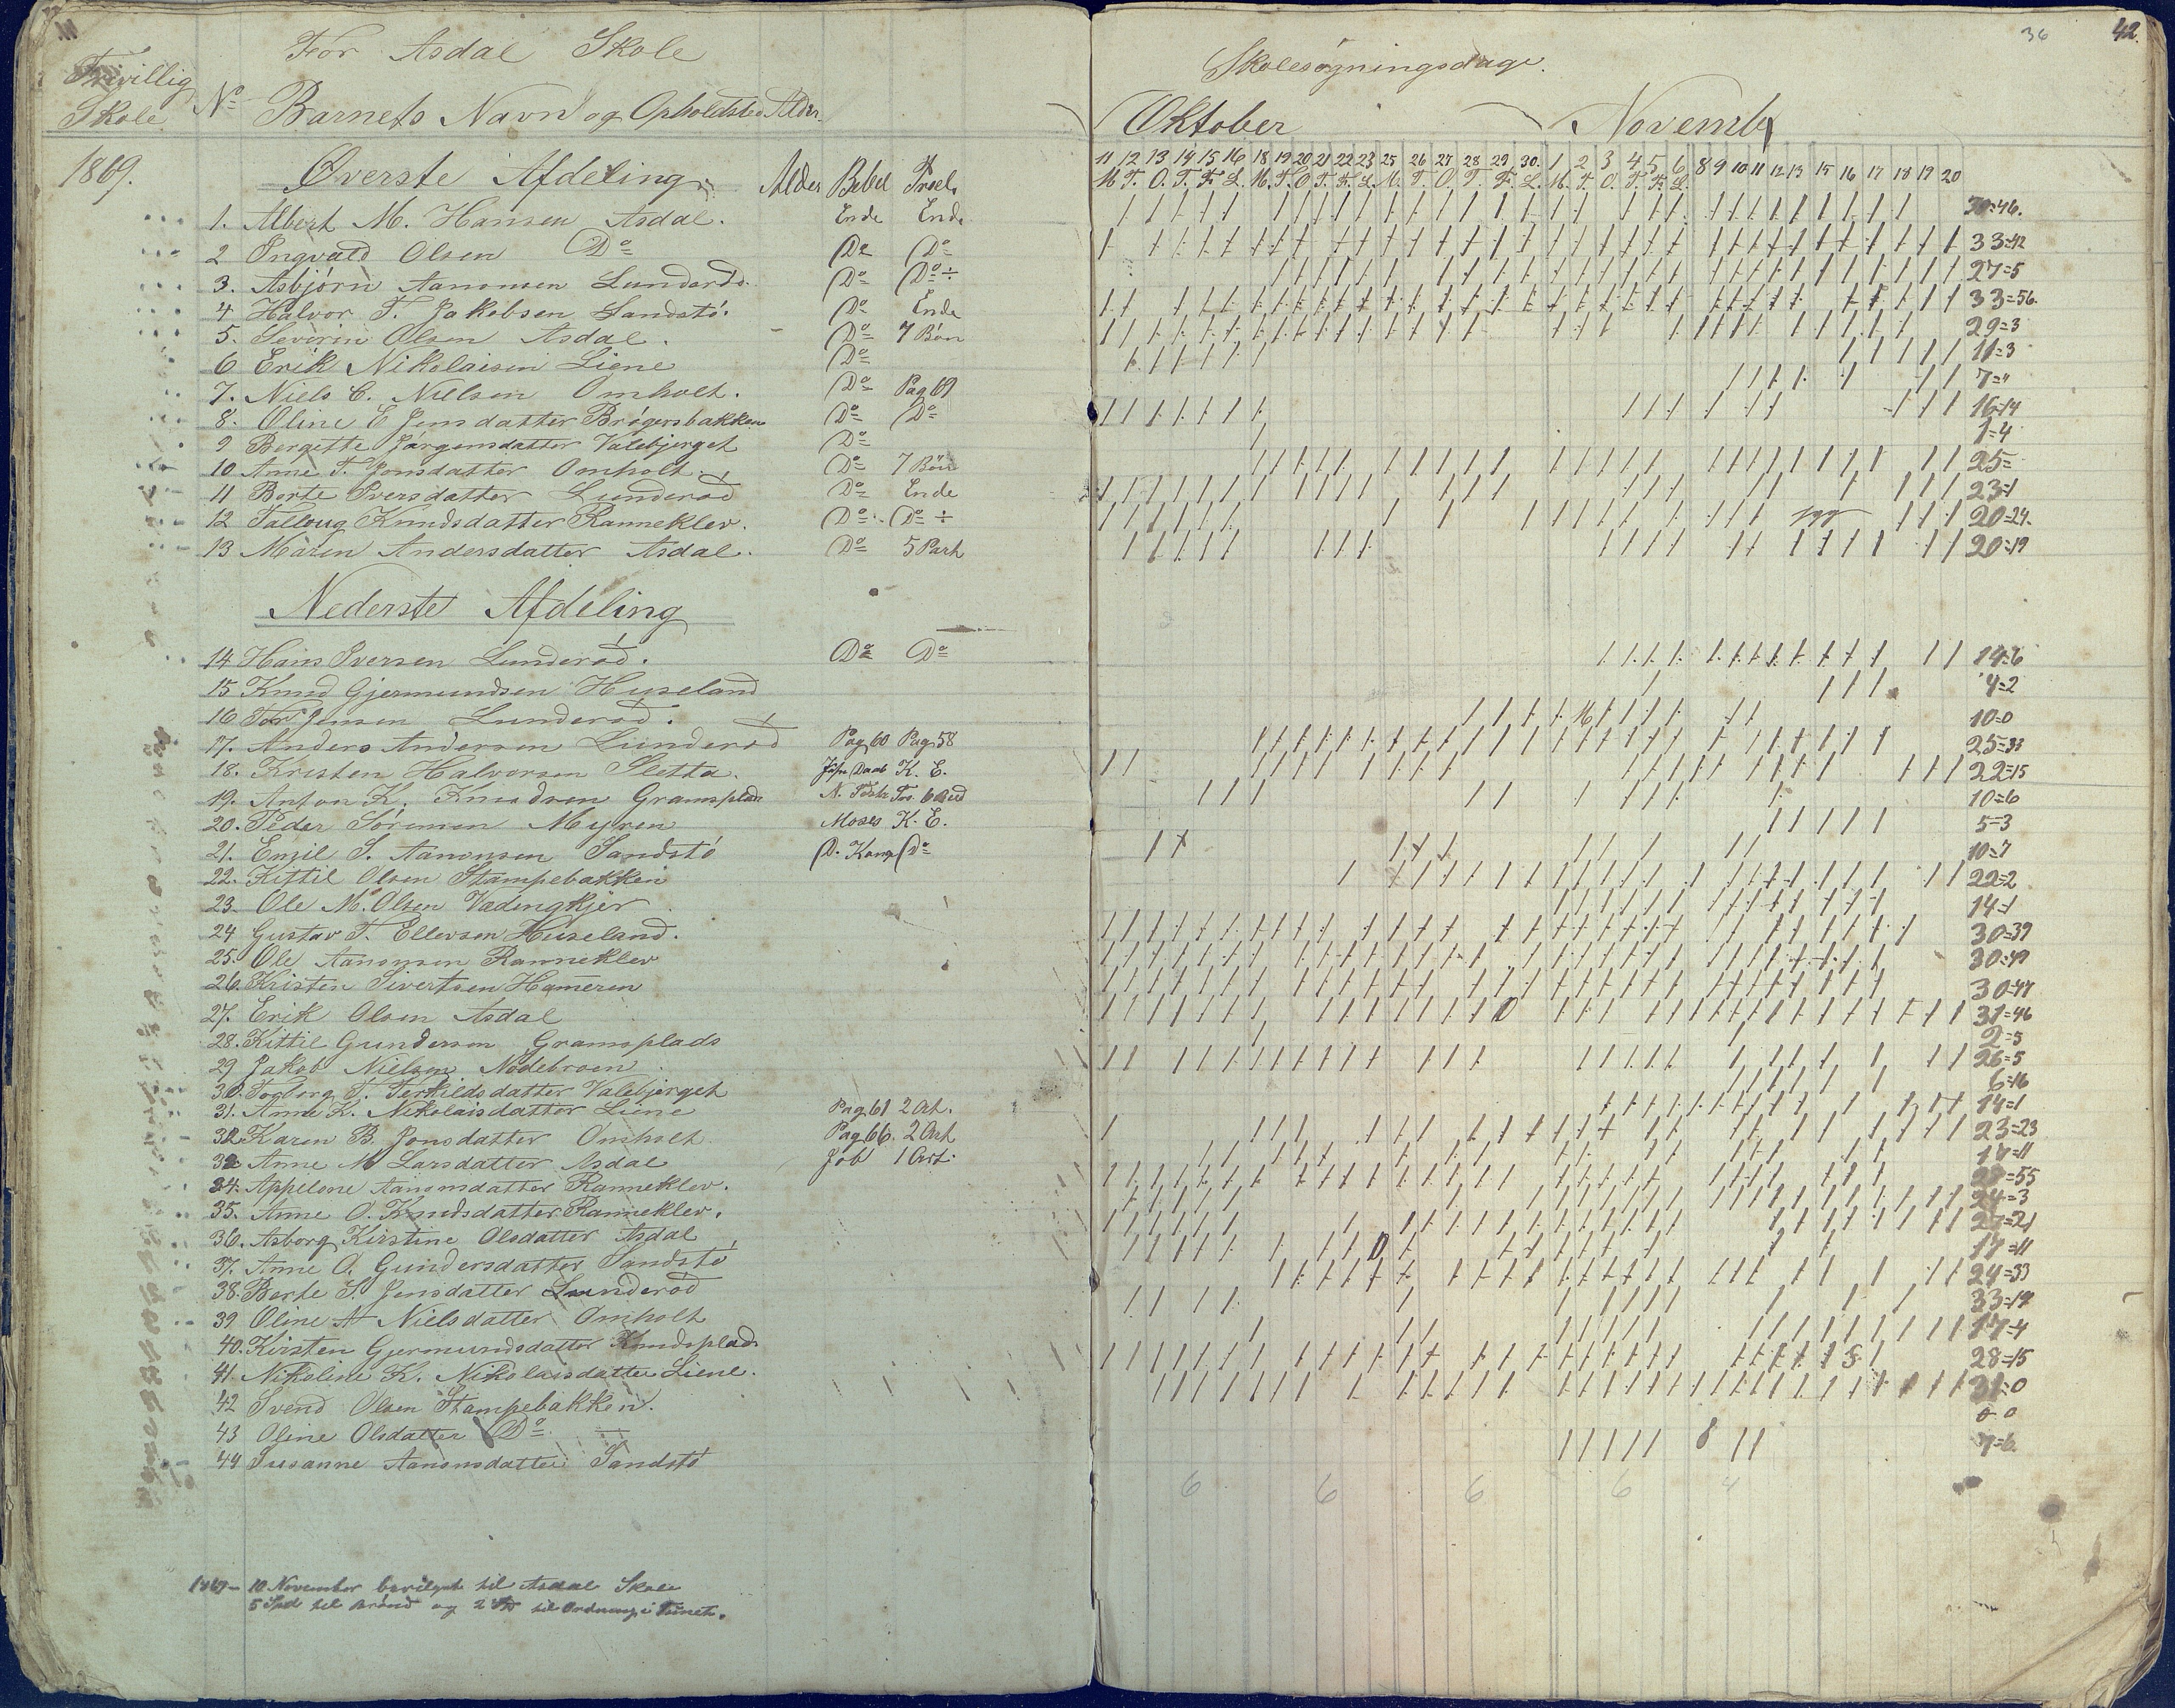 For Asdal Skole
Frivillig Skole
No Barnets Navn og Opholdsted Alder
1869.
Øverste Afdeling Alder Bibel
1. Albert M. Hansen Asdal. Ende Ende
2 Ingvald Olsen Do Do Do
3. Asbjørn Aanonsen Lunderød. Do Do ÷
4 Halvor T. Jakobsen Sandstø. Do Ende
5. Severin Olsen Asdal. Do 7 Bön
6 Erik Nikolaisen Liene Do
7. Niels C. Nielsen Omholt. Do Pag 69
8. Oline E Jensdatter Brøgersbakken Do Do
9 Bergette Jørgensdatter Valebjerget Do
10 Anne T. Jonsdatter Omholt. Do 7 Bön
11 Berte Iversdatter Lunderød Do Ende
12 Talloug Knudsdatter Ranneklev. Do Do ÷
13 Maren Andersdatter Asdal. Do 5 Part
Nederste Afdeling
14 Hans Iversen Lunderød. Do Do
15 Knud Gjermundsen Huseland
16 Tor Jensen Lunderød.
17. Anders Andersen Lunderød Pag 60 Pag 58
18. Kristen Halvorsen Sletta. K. E.
19. Anton K. Knudsen Gramsplads
20. Peder Sørensen Myren Moses K. E.
21. Emil S. Aanonsen Sandstø Do
22. Kittil Olsen Stampebakken
23. Ole M. Olsen Vadingkjer
24 Gustav T. Ellevsen Huseland.
25. Ole Aanonsen Ranneklev
26. Kristen Sivertsen Hameren
27. Erik Olsen Asdal
28. Kittil Gundersen Gramsplads
29 Jakob Nielsen Nødebroen
30. Torborg T. Terkildsdatter Valebjerget
31. Anne K. Nikolaisdatter Liene Pag 61 2 Art.
32 Karen B. Jonsdatter Omholt Pag 66. 2 Art
33 Anne M Larsdatter Asdal Job 1 Art.
34. Appelone Aanonsdatter Ranneklev.
35. Anne O. Knudsdatter Ranneklev.
36. Asborg Kirstine Olsdatter Asdal
37. Anne O. Gundersdatter Sandstø
38. Berte S. Jensdatter Lunderød
39 Oline A Nielsdatter Omholt
40. Kirsten Gjermundsdatter Knudsplads
41. Nikoline K. Nikolaisdatter Liene.
42 Svend Olsen Stampebakken.
43 Oline Olsdatter Do
44 Susanne Aanonsdatter Sandstø
1869 - 10 November bevilget til Asdal Skole
5 Spd til Brønd og 2 Spd til Ordning i Tunet.
36 42.
Skolesøgningsdage.
Oktober Novembr
11 12 13 14 15 16 18 19 20 21 22 23 25 26 27 28 29 30. 1 2 3 4 5 6 8 9 10 11 12 13 15 16 17 18 19 20
M T. O. T. F. L. M. T. O T. F. L. M. T. O. T. F. L. M. T. O. T. F. L.
30=46.
33=42
27=5
33=56.
29=3
11=3
7="
16=14
1=4
25=
23=1
20=24.
20=19
14=6
4=2
10=0
25=33
22=15
10=6
5=3
10=7
22=2
14=1
30=39
30=49
30=47
31=46
2=5
26=5
6=16
14=1
23=23
17=11
28=55
24=3
27=21
17=11
24=33
33=19
17=4
28=15
31=0
0=0
7=6
6 6 6 6 4